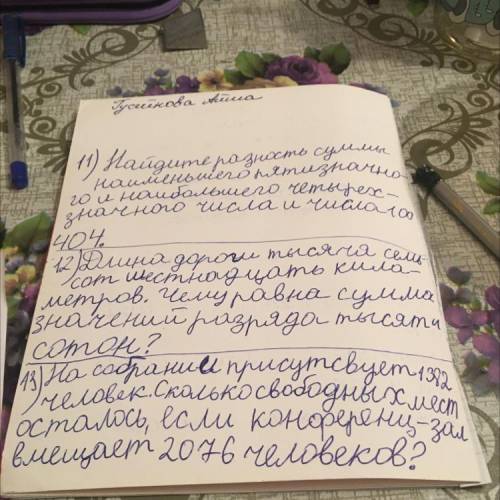 Гусейнова Айша
11) Найдите разность суммы
наименьшего пятизначно-
го и наибольшего четырех-
значного числа и числа 100
404.
12) Длина дороги тысяча семь
сот шестнадцать кила-
метров. Чему равна сумма
значений разряда тысяч и
сотон?
13) На собрании присутсвует 1382
человек. Сколько свободных мест
осталось, если конференц-зал
вмещает 2076 человеков?